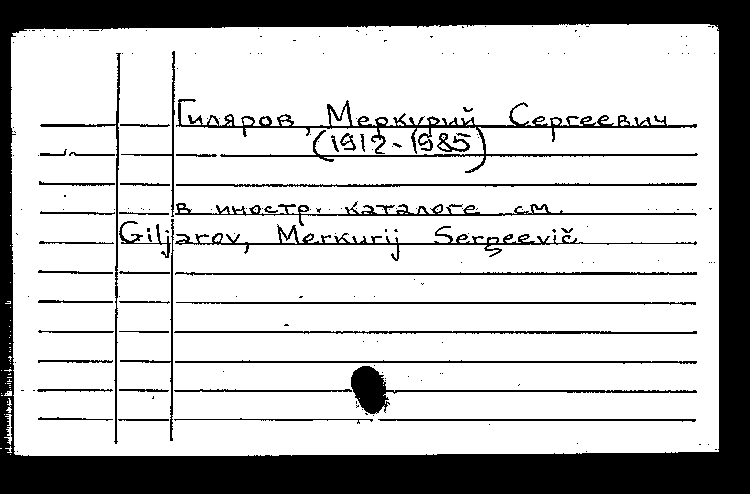 Гиляров, Меркурий Сергеевич
(1912-1985)
в иностр. каталоге см.
Giljarov, Merkurij Sergeevič